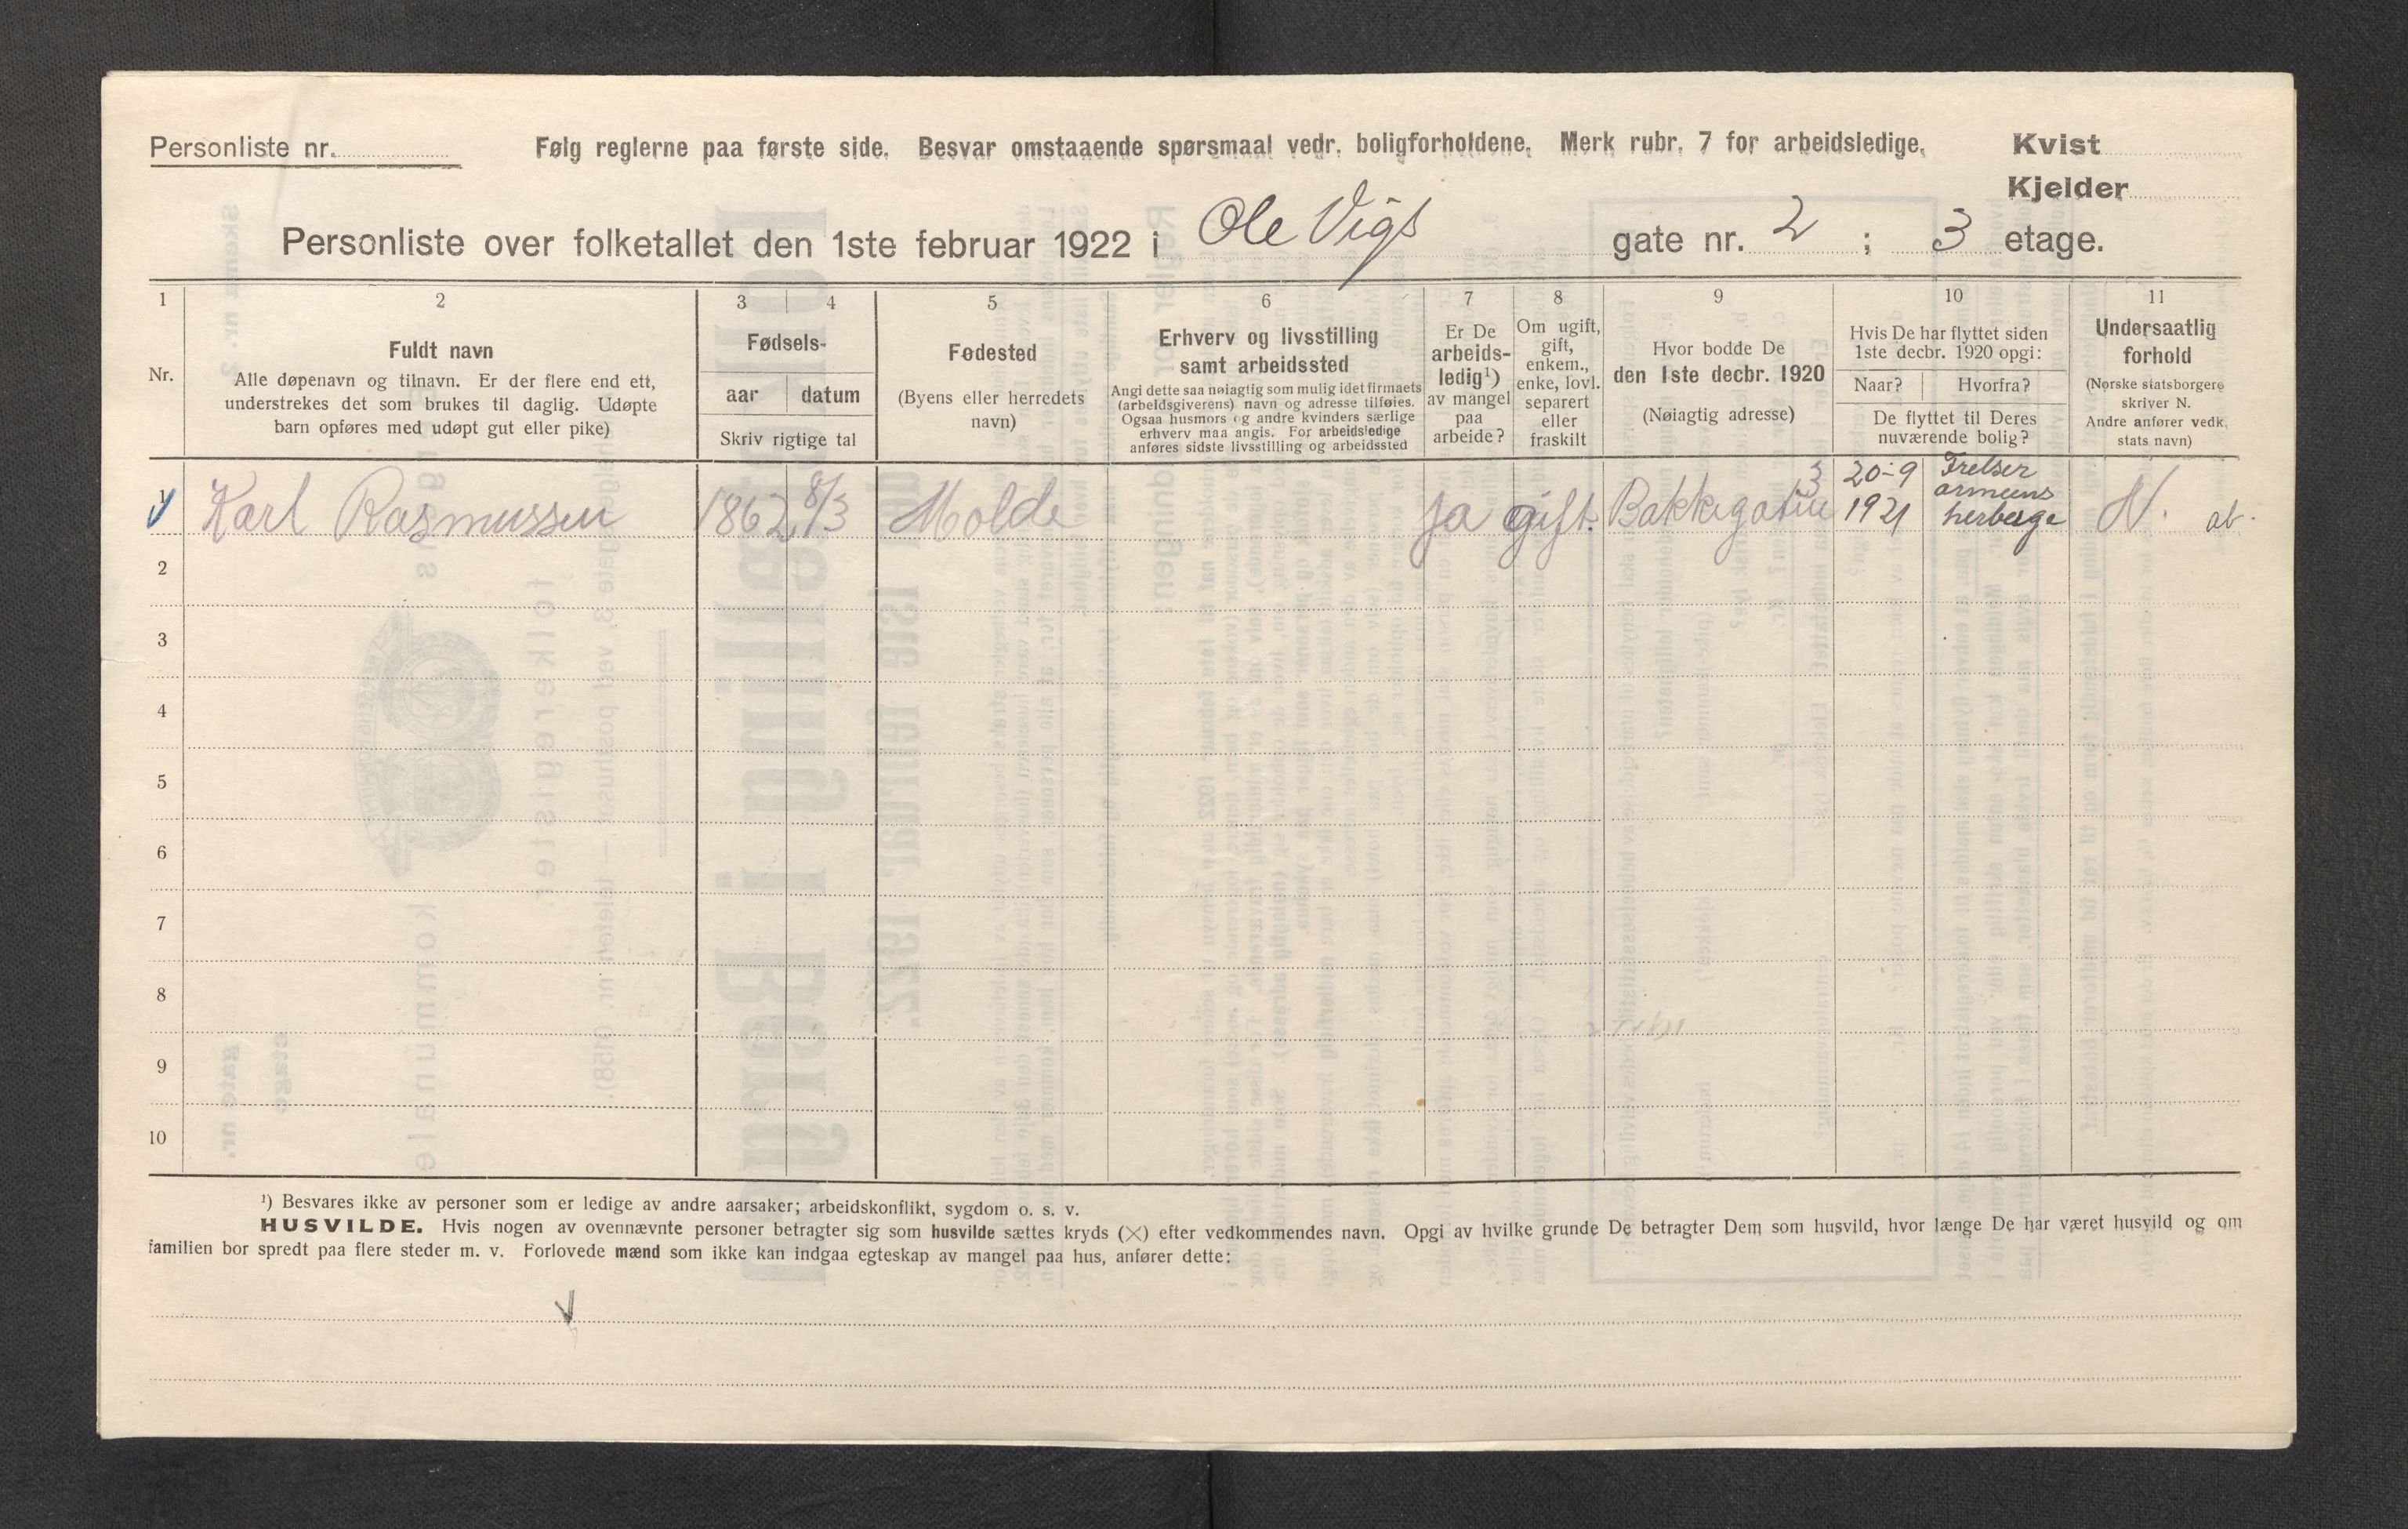 Personliste nr.
Følg reglerne paa første side. Besvar omstaaende spørsmaal vedr. boligforholdene. Merk rubr. 7 for arbeidsledige.
Kvist
Kjelder
Personliste over folketallet den 1ste februar 1922 i Ole Vigs gate nr. 2 ; 3 etage.
1
Nr.
2
Fuldt navn
Alle døpenavn og tilnavn. Er der flere end ett,
understrekes det som brukes til daglig. Udøpte
barn opføres med udøpt gut eller pike)
3
4
Fødsels-
aar
datum
Skriv rigtige tal
5
Fødested
(Byens eller herredets
navn)
6
Erhverv og livsstilling
samt arbeidssted
Angi dette saa nøiagtig som mulig idet firmaets
(arbeidsgiverens) navn og adresse tilføies.
Ogsaa husmors og andre kvinders særlige
erhverv maa angis. For arbeidsledige
anføres sidste livsstilling og arbeidssted
7
Er De
arbeids-
ledig¹)
av mangel
paa
arbeide?
8
Om ugift,
gift,
enkem.,
enke, lovl.
separert
eller
fraskilt
9
Hvor bodde De
den 1ste decbr. 1920
(Nøiagtig adresse)
10
Hvis De har flyttet siden
1ste decbr. 1920 opgi:
Naar?
Hvorfra?
De flyttet til Deres
nuværende bolig?
11
Undersaatlig
forhold
(Norske statsborgere
skriver N.
Andre anfører vedk.
stats navn)
1 Karl Rasmussen 1862 8/3 Molde ja gift. Bakkegatin 3 20-9 1921 Frelser armeens herberge N. ab.
2
3
4
5
6
7
8
9
10
¹) Besvares ikke av personer som er ledige av andre aarsaker; arbeidskonflikt, sygdom o. s. v.
HUSVILDE. Hvis nogen av ovennævnte personer betragter sig som husvilde sættes kryds (×) efter vedkommendes navn. Opgi av hvilke grunde De betragter Dem som husvild, hvor længe De har været husvild og om
familien bor spredt paa flere steder m. v. Forlovede mænd som ikke kan indgaa egteskap av mangel paa hus, anfører dette: